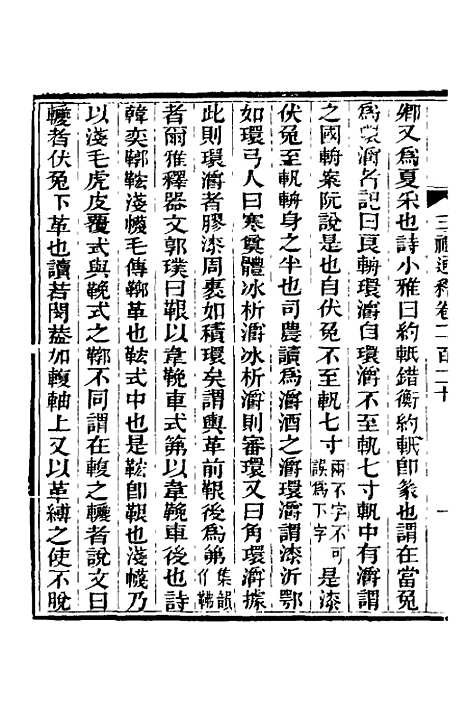 三禮通釋卷二百二十
一
卿又為夏采也詩小雅曰約軝錯衡約軝卽篆也謂在當兔
為環灂者記曰良輈環灂自環灂不至軓七寸軓中有灂謂
之國輈案阮說是也自伏兔不至軓七寸兩不字不可誤為下字是漆
伏兔至軓輈身之半也司農讀為灂酒之灂環灂謂漆沂鄂
如環弓人曰寒奠體冰析灂冰析灂則審環又曰角環灂據
此則環灂者膠漆周裹如積環矣謂輿革前鞎後為第集韻作䩛
者爾雅釋器文郭璞曰鞎以韋鞔車式第以韋鞔車後也詩
韓奕鞹鞃淺幭毛傳鞹革也鞃式中也是鞃卽鞎也淺幭乃
以淺毛虎皮覆式與鞔式之鞹不同謂在輹之䡺者說文曰
䡺者伏兔下革也讀若閔葢加輹軸上又以革縛之使不脫